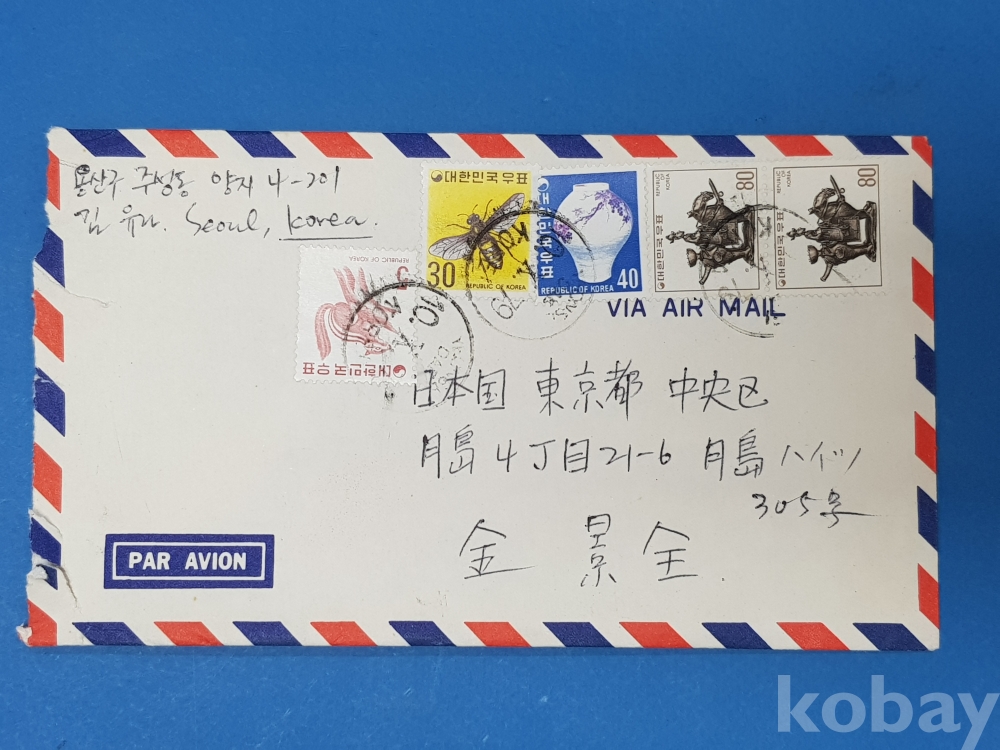 용산구 주성동 양지 4-201
김 유미. Seoul, Korea.
대한민국우표
30
REPUBLIC OF KOREA
대한민국우표
REPUBLIC OF KOREA 40
REPUBLIC OF KOREA
80
대한민국우표
REPUBLIC OF KOREA
80
대한민국우표
REPUBLIC OF KOREA
대한민국우표
VIA AIR MAIL
日本国 東京都 中央区
月島 4丁目21-6 月島ハイツ
305号
金 景全.
PAR AVION
kobay